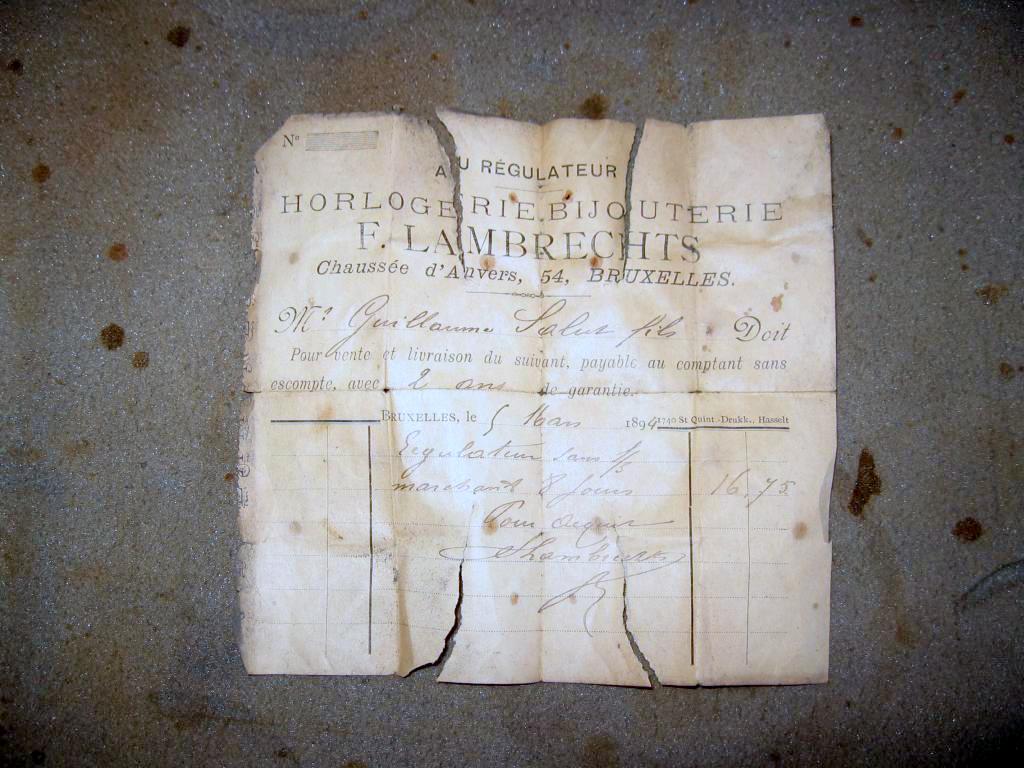 Nº
AU RÉGULATEUR
HORLOGERIE BIJOUTERIE
F. LAMBRECHTS
Chaussée d'Anvers, 54, BRUXELLES.
Mr Guillaume Salut fils Doit
Pour vente et livraison du suivant, payable au comptant sans
escompte, avec 2 ans de garantie.
BRUXELLES, le 5 Mars 1894 1740 St Quint.-Drukk., Hasselt
Regulateur sans
marchant 8 jours 16,75
Pour acquit
FLambrechts